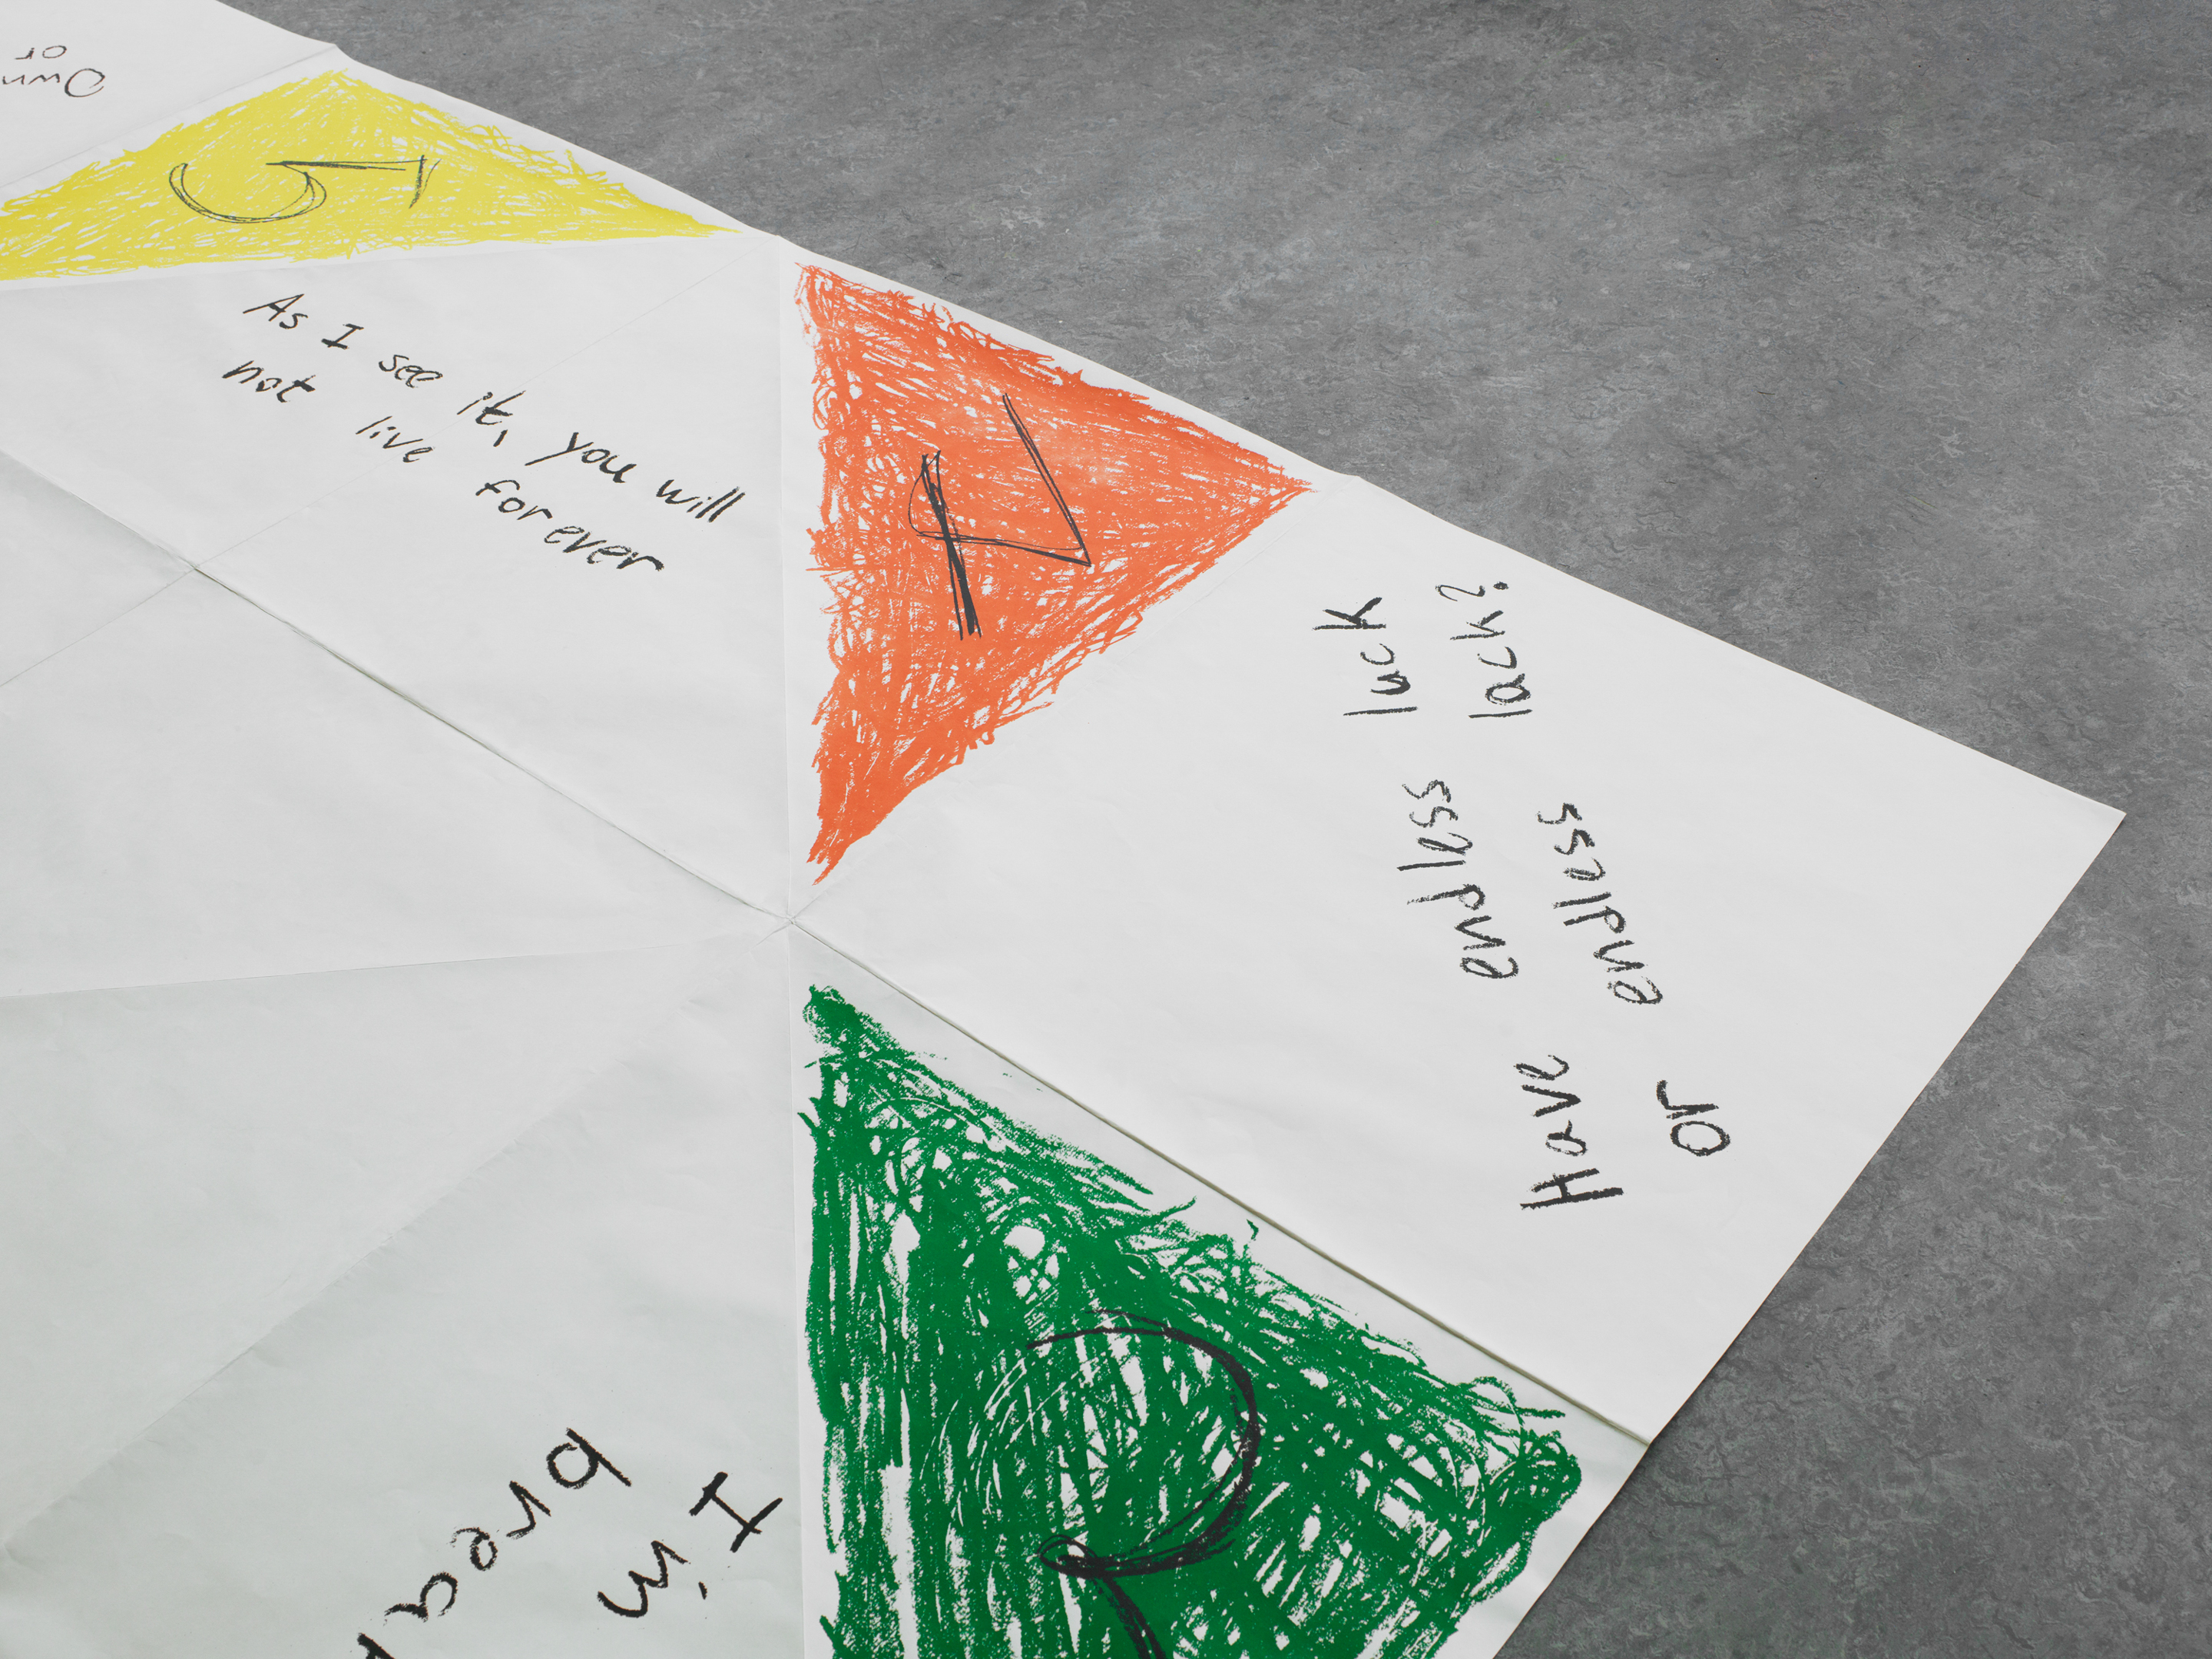 Own
or
5
As I see it, you will
not live forever
4
Have endless luck
or endless lack?
2
I in